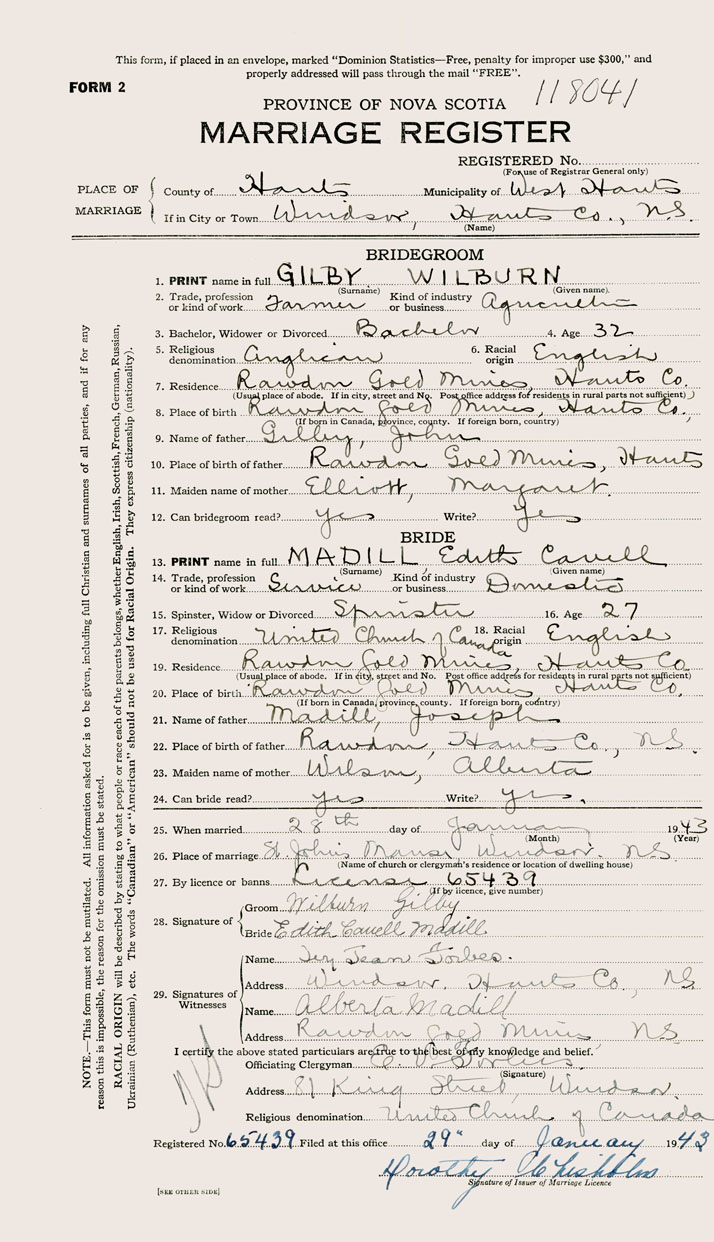 This form, if placed in an envelope, marked “Dominion Statistics—Free, penalty for improper use $300,” and
properly addressed will pass through the mail “FREE”.
FORM 2
118041
PROVINCE OF NOVA SCOTIA
MARRIAGE REGISTER
REGISTERED No.
(For use of Registrar General only)
PLACE OF MARRIAGE
County of Hants Municipality of West Hants
If in City or Town Windsor, Hants Co., N.S.
(Name)
BRIDEGROOM
1. PRINT name in full GILBY WILBURN
(Surname) (Given name)
2. Trade, profession or kind of work Farmer Kind of industry or business Agriculture
3. Bachelor, Widower or Divorced Bachelor 4. Age 32
5. Religious denomination Anglican 6. Racial origin English
7. Residence Rawdon Gold Mines, Hants Co.
(Usual place of abode. If in city, street and No. Post office address for residents in rural parts not sufficient)
8. Place of birth Rawdon Gold Mines, Hants Co.,
(If born in Canada, province, county. If foreign born, country)
9. Name of father Gilby, John
10. Place of birth of father Rawdon Gold Mines, Hants
11. Maiden name of mother Elliott, Margaret.
12. Can bridegroom read? yes Write? yes
BRIDE
13. PRINT name in full MADILL, Edith Cavell
(Surname) (Given name)
14. Trade, profession or kind of work Service Kind of industry or business Domestic
15. Spinster, Widow or Divorced Spinster 16. Age 27
17. Religious denomination United Church of Canada 18. Racial origin English
19. Residence Rawdon Gold Mines, Hants Co
(Usual place of abode. If in city, street and No. Post office address for residents in rural parts not sufficient)
20. Place of birth Rawdon Gold Mines Hants Co.
(If born in Canada, province, county. If foreign born, country)
21. Name of father Madill, Joseph
22. Place of birth of father Rawdon, Hants Co., N.S.
23. Maiden name of mother Wilson, Alberta
24. Can bride read? yes Write? yes.
25. When married 28th day of January 1943
(Month) (Year)
26. Place of marriage St. John's Manse, Windsor. N.S.
(Name of church or clergyman's residence or location of dwelling house)
27. By licence or banns License 65439
(If by licence, give number)
28. Signature of
Groom Wilburn Gilby
Bride Edith Cavell Madill.
29. Signatures of Witnesses
Name Jean Forbes.
Address Windsor, Hants Co, N.S
Name Alberta Madill
Address Rawdon Gold Mines N.S
I certify the above stated particulars are true to the best of my knowledge and belief.
Officiating Clergyman
(Signature)
Address 81 King Street, Windsor.
Religious denomination United Church of Canada
Registered No. 65439 Filed at this office 29" day of January 1943
Dorothy Chisholm
Signature of Issuer of Marriage Licence
[SEE OTHER SIDE]
NOTE.—This form must not be mutilated. All information asked for is to be given, including full Christian and surnames of all parties, and if for any
reason this is impossible, the reason for the omission must be stated.
RACIAL ORIGIN will be described by stating to what people or race each of the parents belongs, whether English, Irish, Scottish, French, German, Russian,
Ukrainian (Ruthenian), etc. The words “Canadian” or “American” should not be used for Racial Origin. They express citizenship (nationality).